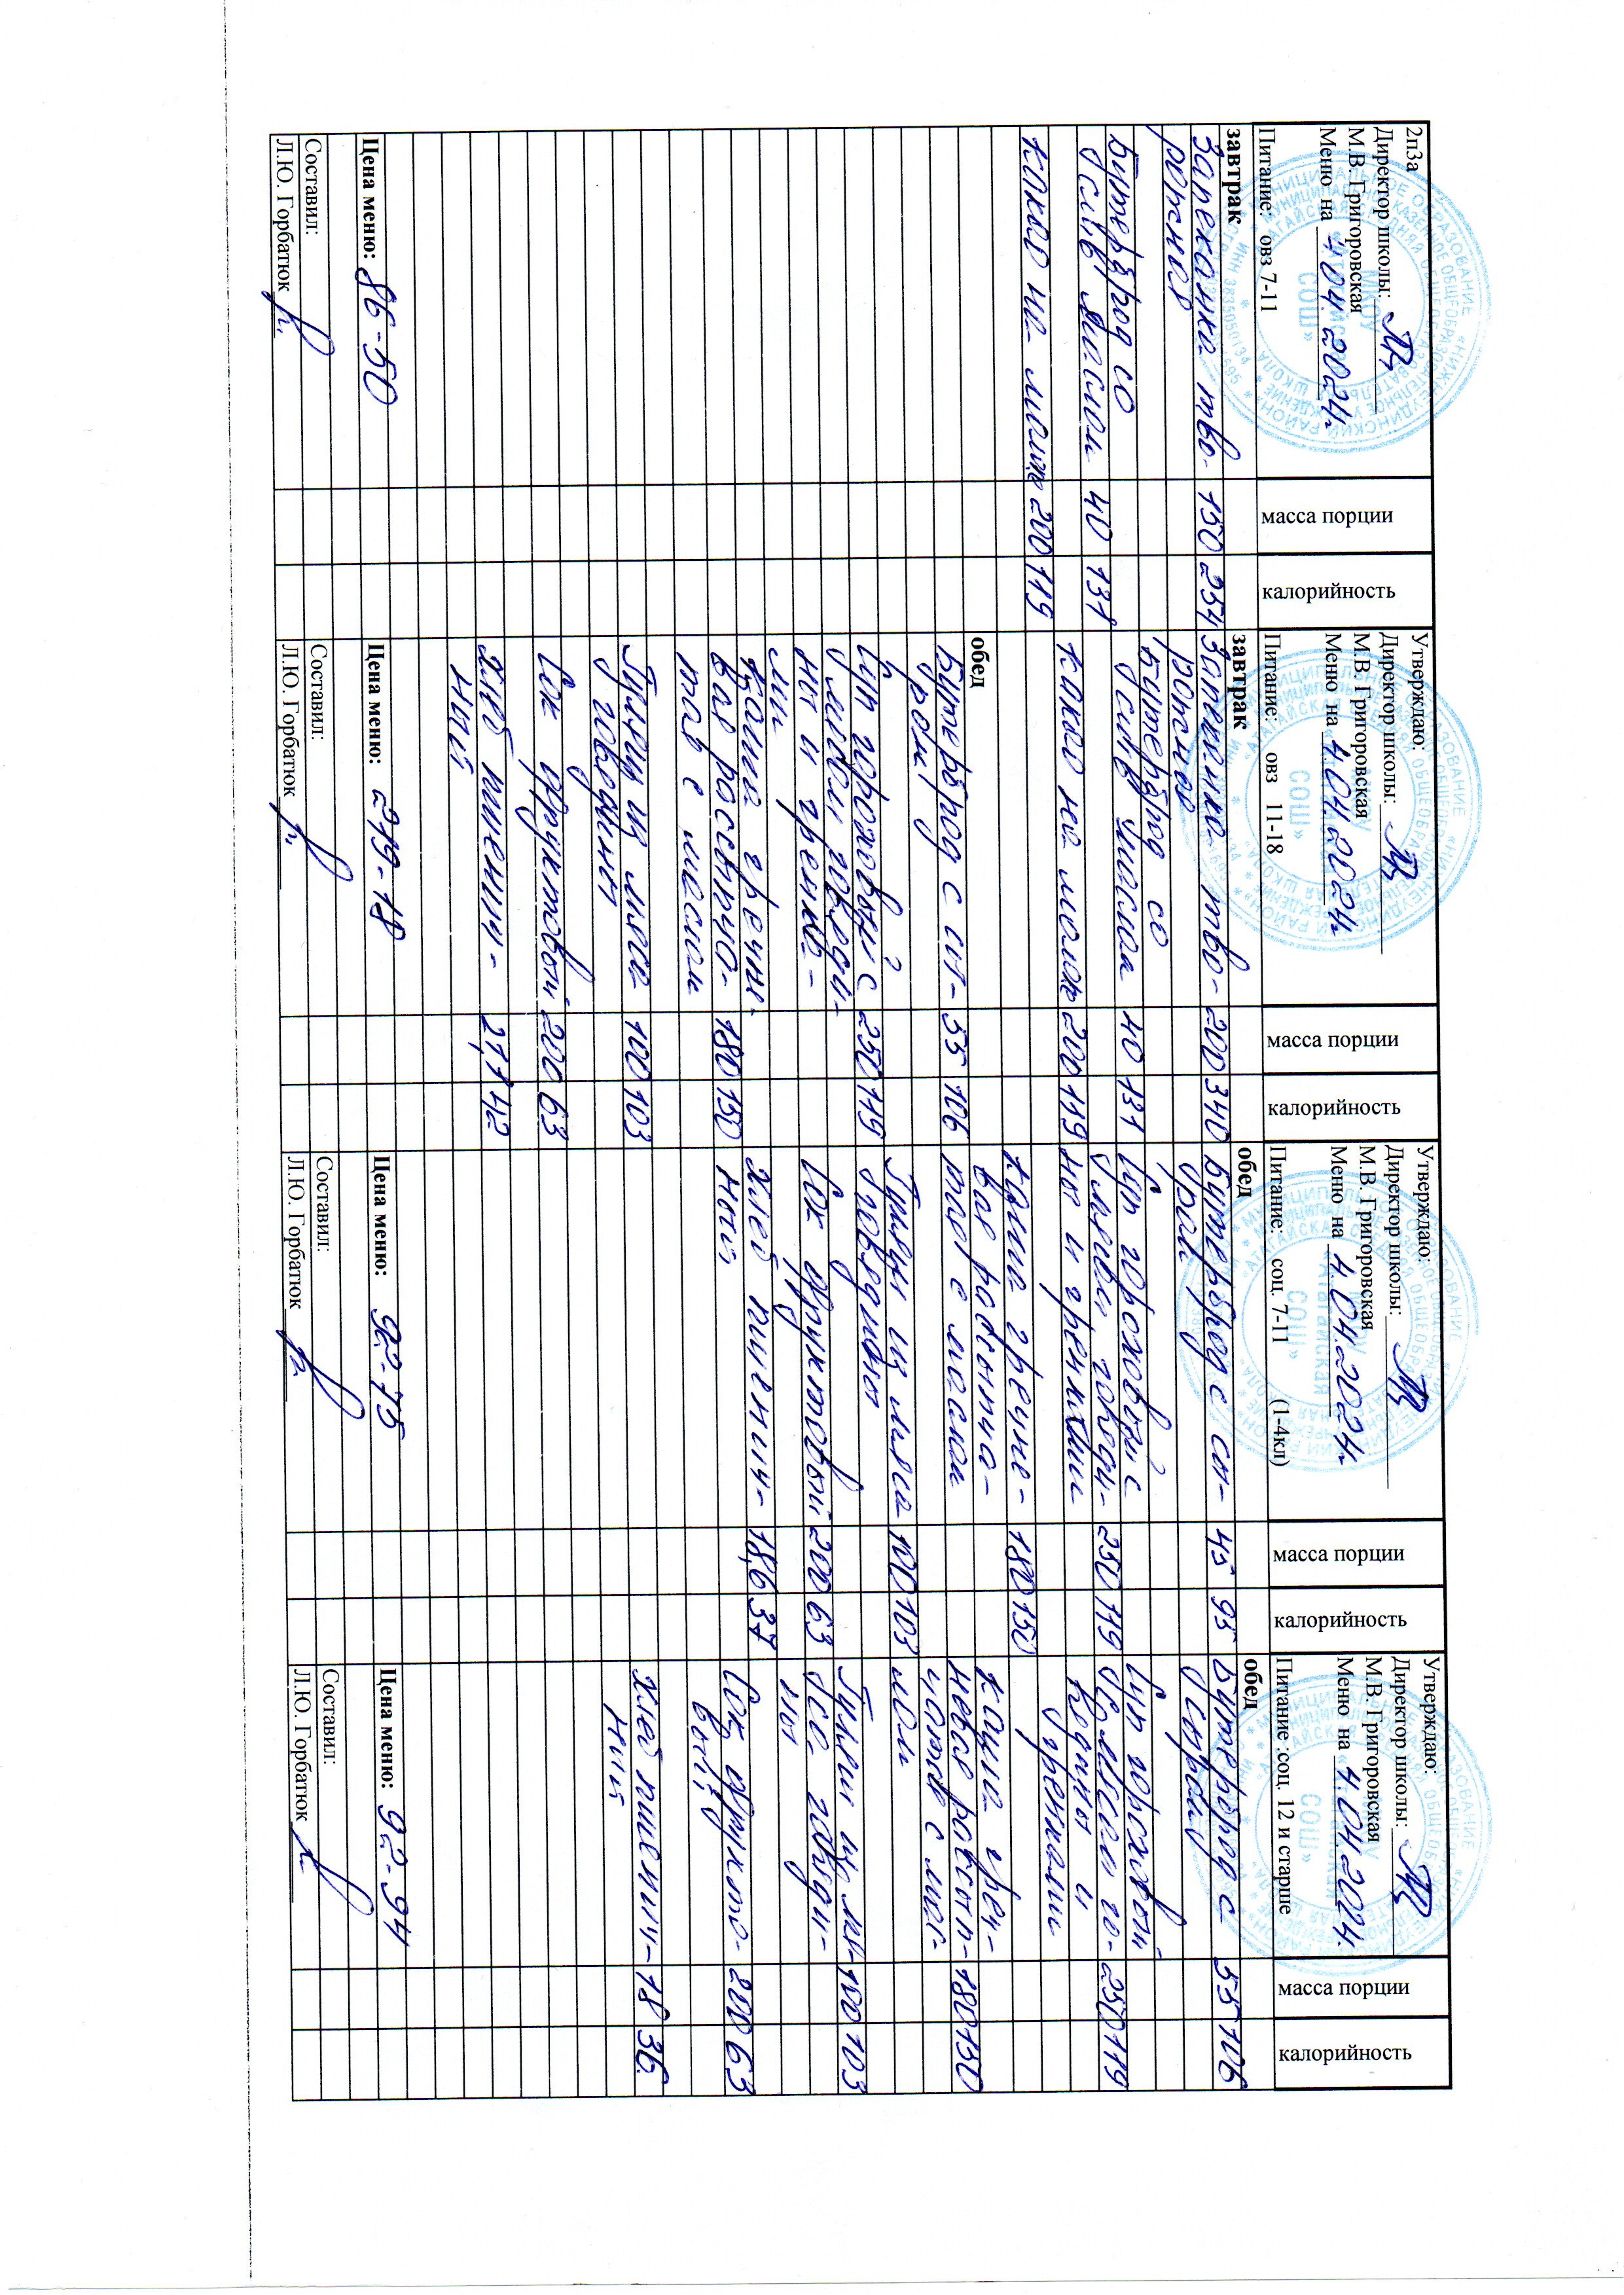 2п3а
Директор школы:
М.В. Григоровская
Меню на 4.04.2024г
Питание: овз 7-11
масса порции
калорийность
завтрак
Запеканка тво- 150 254
рожная
Бутерброд со
слив. маслом 40 131
какао на молоке 200 119
Цена меню: 86-50
Составил:
Л.Ю. Горбатюк
Утверждаю:
Директор школы:
М.В. Григоровская
Меню на 4.04.2024г
Питание: овз 11-18
масса порции
калорийность
завтрак
Запеканка тво- 200 340
рожная
Бутерброд со
слив маслом 40 131
какао на молоке 200 119
обед
Бутерброд с сы- 55 106
ром
Суп гороховый с 250 119
мясом говяди-
ны и гренка-
ми
Каша гречне-
вая рассыпча- 180 150
тая с маслом
Гуляш из мяса 100 103
говядины
Сок фруктовый 200 63
Хлеб пшенич- 21,1 42
ный
Цена меню: 219-18
Составил:
Л.Ю. Горбатюк
Утверждаю:
Директор школы:
М.В. Григоровская
Меню на 4.04.2024г
Питание: соц. 7-11 (1-4кл)
масса порции
калорийность
обед
Бутерброд с сы- 45 95
ром
Суп гороховый с
мясом говяди- 250 119
ны и гренками
Каша гречне- 180 150
вая рассыпча-
тая с маслом
Гуляш из мяса 100 103
говядины
Сок фруктовый 200 63
Хлеб пшенич- 18,6 37
ный
Цена меню: 92-75
Составил:
Л.Ю. Горбатюк
Утверждаю:
Директор школы:
М.В. Григоровская
Меню на 4.04.2024.
Питание :соц. 12 и старше
масса порции
калорийность
обед
Бутерброд с 55 106
сыром
Суп гороховый
с мясом го- 250 119
вядины и
гренками
Каша греч-
невая рассып- 180 150
чатая с мас-
лом
Гуляш из мя- 100 103
са говяди-
ны
Сок фрукто- 200 63
вый
Хлеб пшенич- 18 36
ный
Цена меню: 92-94
Составил:
Л.Ю. Горбатюк